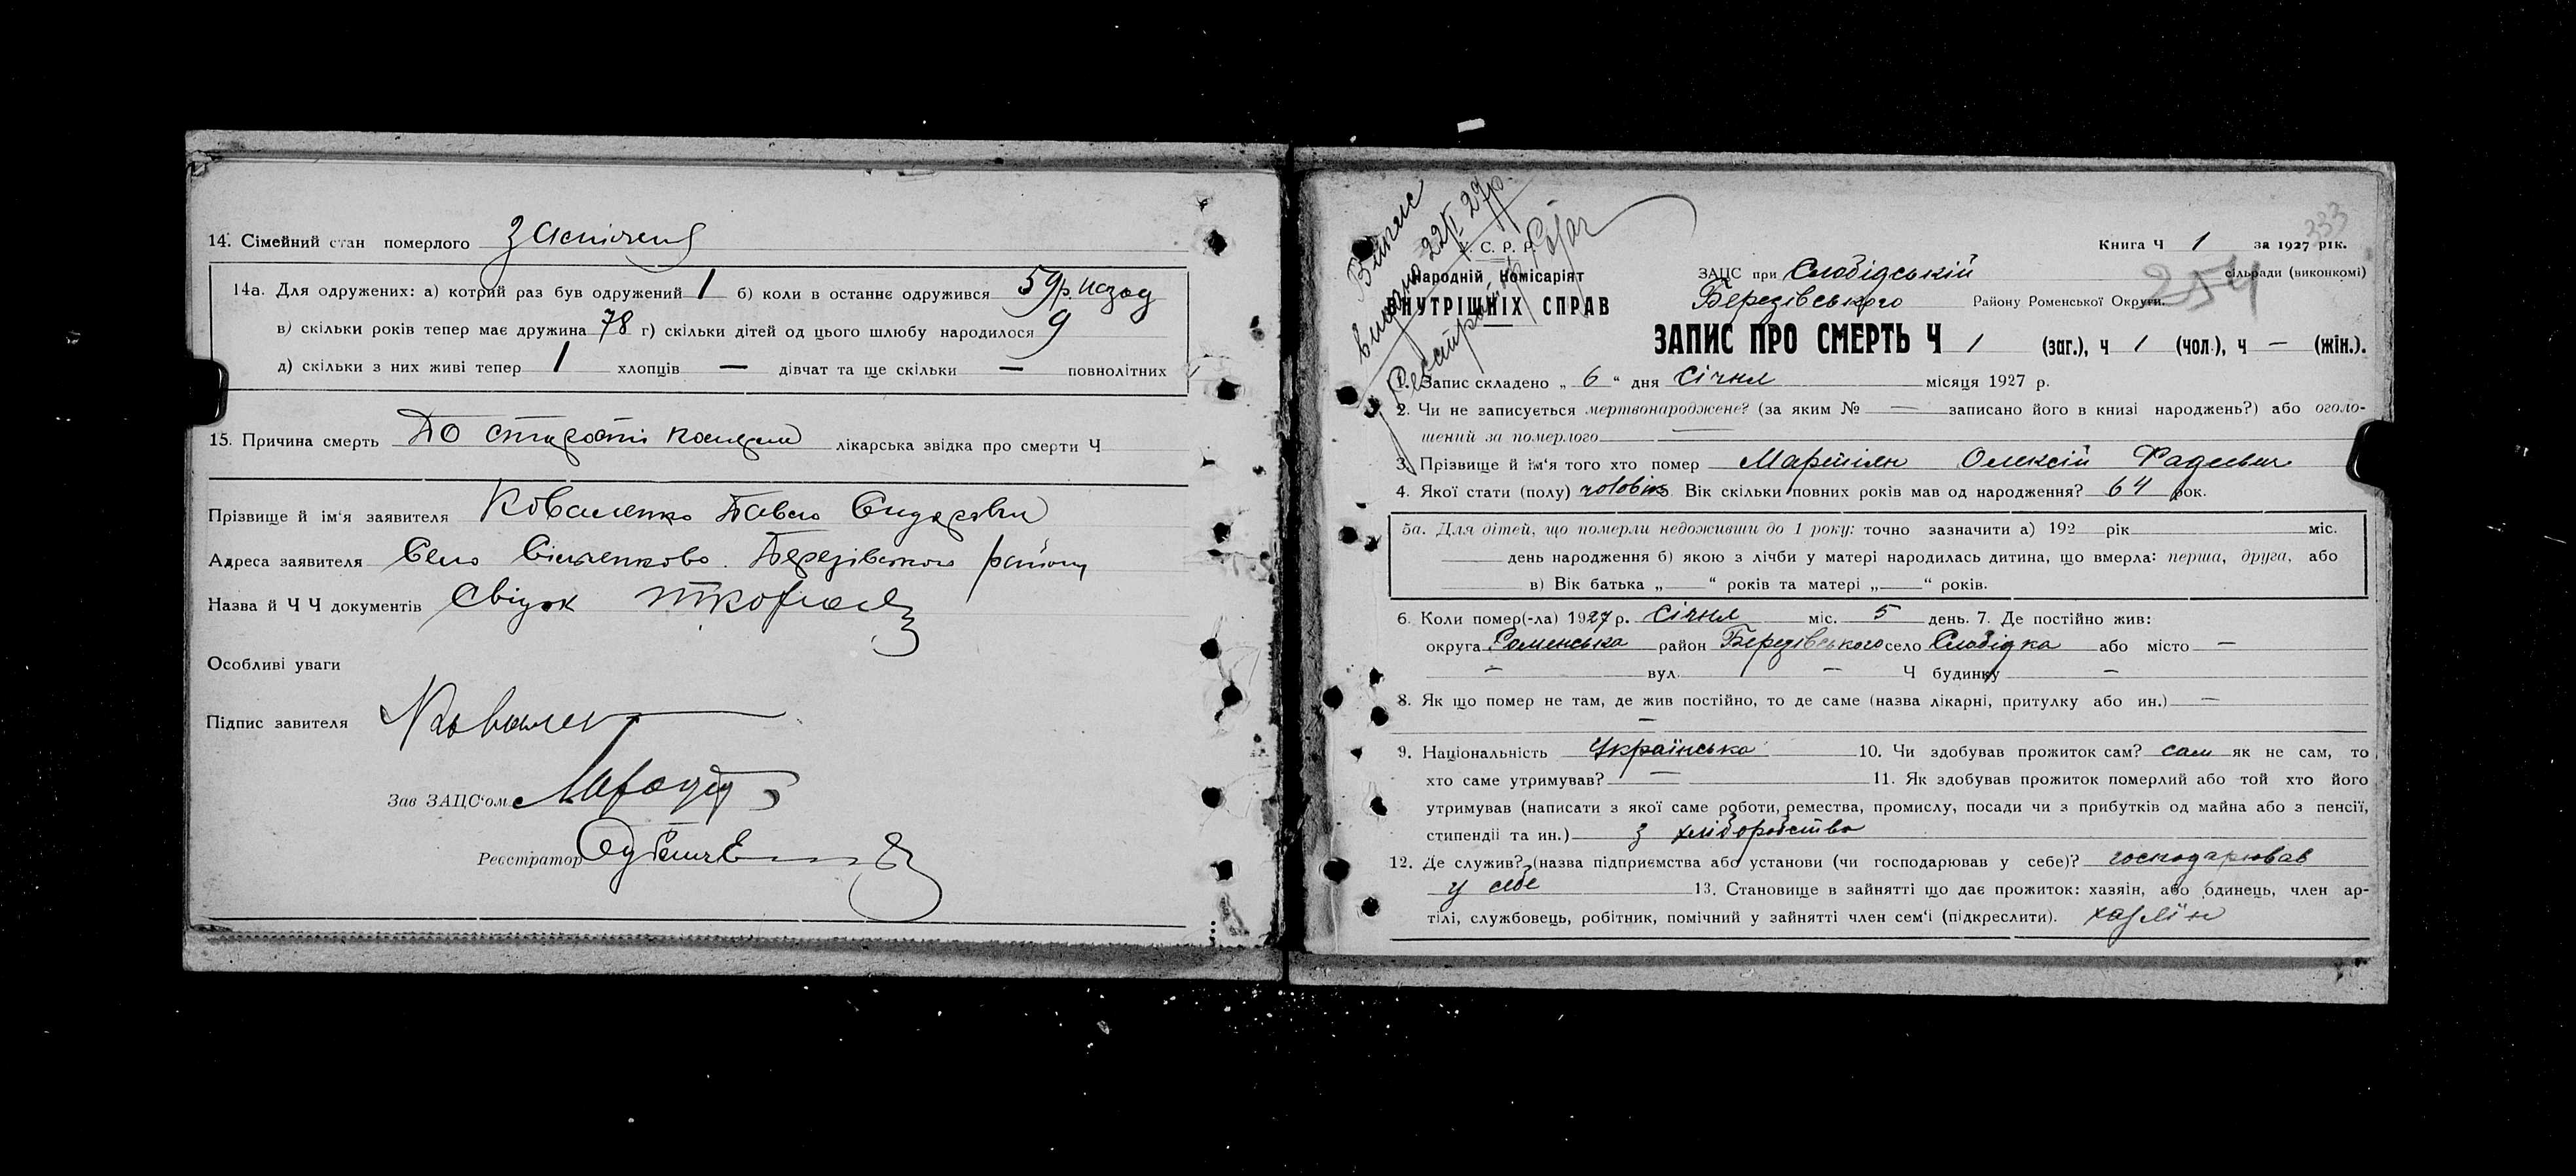 14. Сімейний стан померлого
14а. Для одружених: а) котрий раз був одружений 1 б) коли в останнє одружився 59 р. назад
в) скільки років тепер має дружина 78 г) скільки дітей од цього шлюбу народилося 9
д) скільки з них живі тепер 1 хлопців — дівчат та ще скільки — повнолітних
15. Причина смерть По старости лікарська звідка про смерти Ч
Прізвище й ім'я заявителя Коваленко Павло
Адреса заявителя Село Березівського району
Назва й Ч Ч документів Свідок
Особливі уваги
Підпис завителя
Зав ЗАЦС'ом
Реєстратор
Випис
видано 22/І 29р.
Реєстратор
У. С. Р. Р.
Народній Комісаріят
ВНУТРІШНІХ СПРАВ
333
Книга Ч 1 за 1927 рік.
ЗАЦС при Слобідській сільради (виконкомі)
254
Березівського Району Роменської Округи.
ЗАПИС ПРО СМЕРТЬ Ч 1 (заг.), ч 1 (чол.), ч — (жін.).
1. Запис складено „ 6 “ дня Січня місяця 1927 р.
2. Чи не записується мертвонароджене? (за яким № — записано його в книзі народжень?) або оголо-
шений за померлого —
3. Прізвище й ім'я того хто помер Олексій
4. Якої стати (полу) Вік скільки повних років мав од народження? 64 рок.
5а. Для дітей, що померли недоживши до 1 року: точно зазначити а) 192 рік міс.
день народження б) якою з лічби у матері народилась дитина, що вмерла: перша, друга, або
в) Вік батька „ “ років та матері „ “ років.
6. Коли помер(-ла) 1927 р. Січня міс. 5 день. 7. Де постійно жив:
округа Роменська район Березівського село Слобідка або місто —
— вул. — Ч будинку —
8. Як що помер не там, де жив постійно, то де саме (назва лікарні, притулку або ин.) —
—
9. Національність Українська 10. Чи здобував прожиток сам? сам як не сам, то
хто саме утримував? — 11. Як здобував прожиток померлий або той хто його
утримував (написати з якої саме роботи, ремества, промислу, посади чи з прибутків од майна або з пенсії,
стипендії та ин.) з хліборобства
12. Де служив? (назва підприємства або установи (чи господарював у себе)? господарював
у себе 13. Становище в зайнятті що дає прожиток: хазяін, або одинець, член ар-
тілі, службовець, робітник, помічний у зайнятті член сем'і (підкреслити). хазяїн